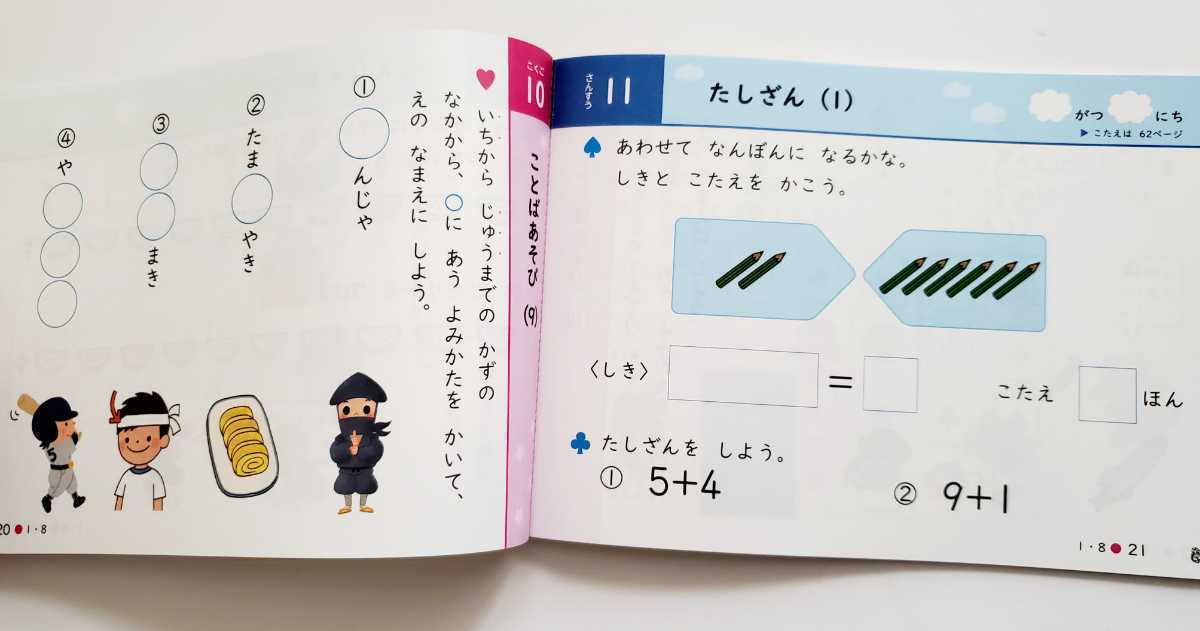 こくご
10
ことばあそび(9)
♥いちから じゅうまでの かずの
なかから、○に あう よみかたを かいて、
えの なまえに しよう。
① ○んじゃ
② たま○やき
③ ○○まき
④ や○○○
5
20●1・8
さんすう
11
たしざん(1)
がつ にち
▶こたえは 62ページ
♠あわせて なんぼんに なるかな。
しきと こたえを かこう。
〈しき〉 = こたえ ほん
♣たしざんを しよう。
① 5+4
② 9+1
1・8●21